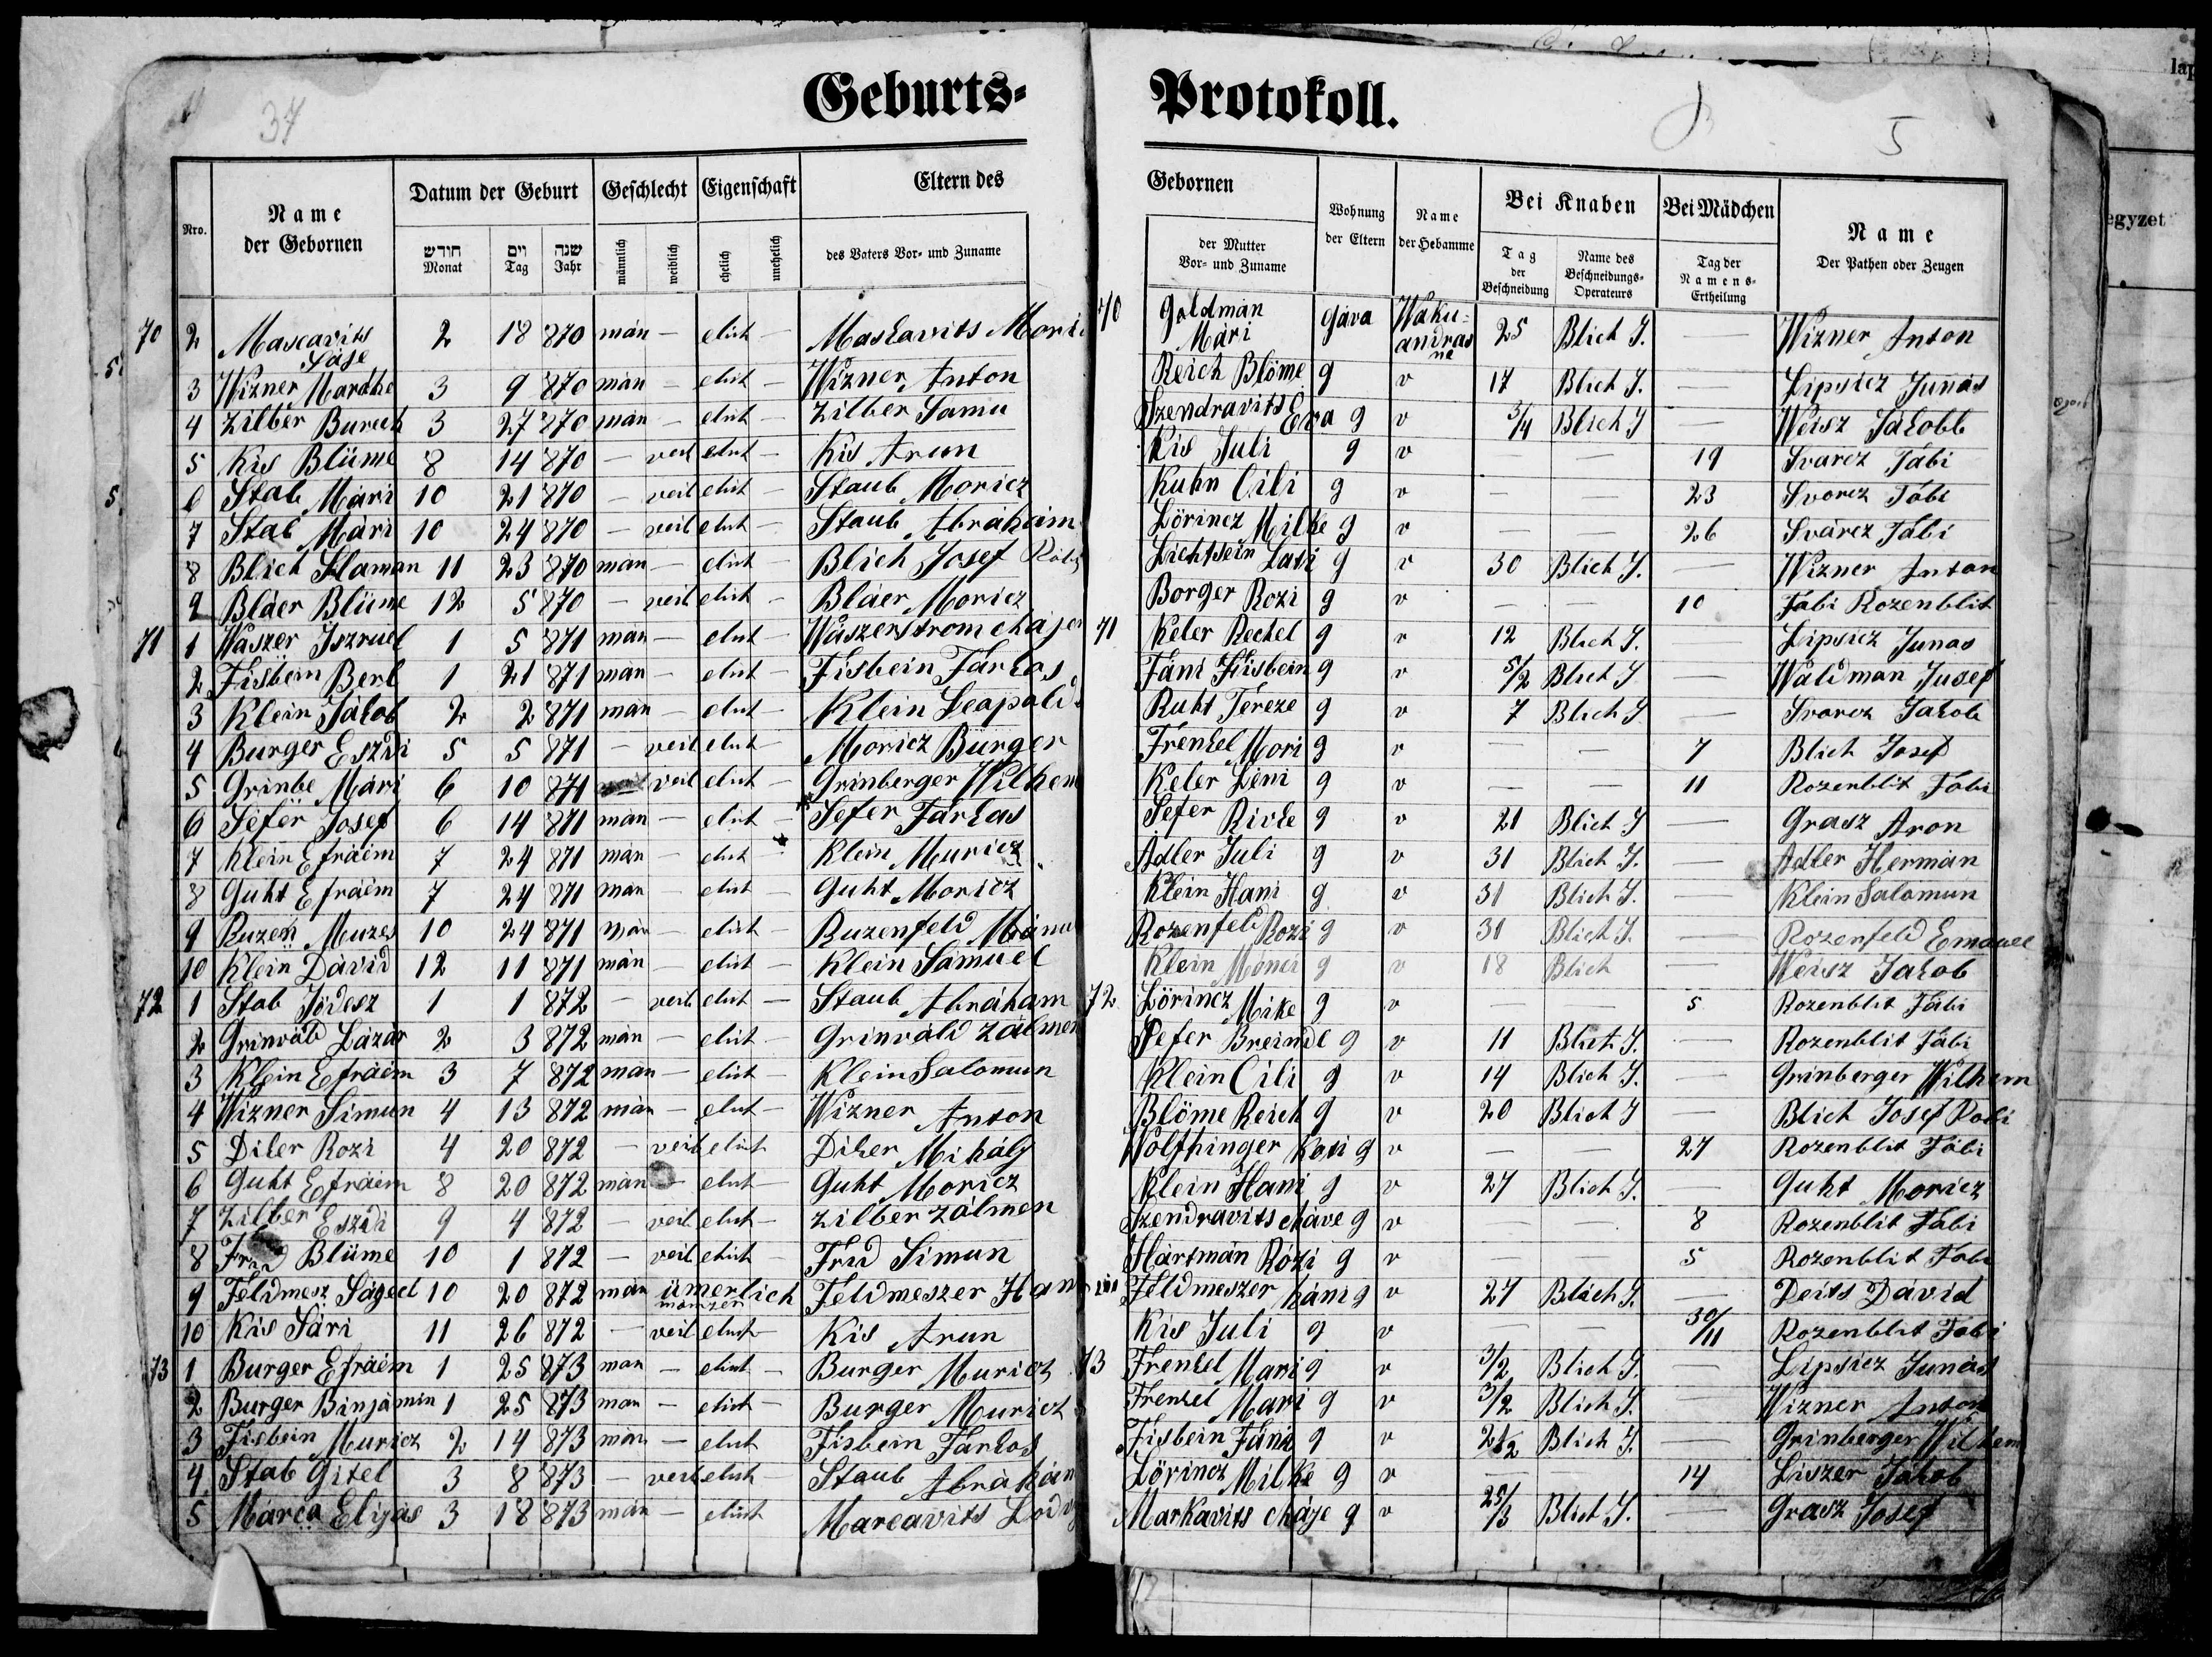 lap
egyzet
34
5
Geburts= Protokoll.
Nro. Name der Gebornen Datum der Geburt Geschlecht Eigenschaft Eltern des Gebornen Wohnung der Eltern Name der Hebamme Bei Knaben Bei Mädchen Name Der Pathen oder Zeugen
חודש Monat יום Tag שנה Jahr männlich weiblich ehelich unehelich des Vaters Vor- und Zuname der Mutter Vor- und Zuname Tag der Beschneidung Name des Beschneidungs-Operateurs Tag der Namens-Ertheilung
70 2 Mascavits Säje 2 18 870 män — elich — Maskavits Mori 70 Goldman Mári Gáva Waku=andras ne 25 Blich J. — Wizner Anton
3 Wizner Mardhe 3 9 870 män — elich — Wizner Anton Reich Blöme g v 17 Blich J. — Lipsicz Junás
4 Zilber Burech 3 27 870 män — elich — Zilber Samu Szendravits Eva g v 3/4 Blich J — Weisz Jakobb
5 Kis Blüme 8 14 870 — veil elich — Kis Arun Kis Juli g v — — 19 Svarcz Fábi
6 Stab Mari 10 21 870 — veil elich — Staub Moricz Kuhn Cili g v — — 23 Svorcz Fábi
7 Stab Mari 10 24 870 — veil elich — Staub Abráhám Lörincz Milke g v — — 26 Svárcz Fábi
8 Blich Slaman 11 23 870 män — elich — Blich Josef Robi Lichtsein Lati g v 30 Blich J. — Wizner Anton
9 Bláer Blüme 12 5 870 — veil elich — Bláer Moricz Borger Rozi g v — — 10 Fabi Rozenblit
71 1 Wászer Iszruel 1 5 871 män — elich — Wászerstrom chajem 71 Keler Rechel g v 12 Blich J. — Lipsicz Junas
2 Fisbein Berl 1 21 871 män — elich — Fisbein Farkas Fáni Fisbein g v 5/2 Blich J — Waldman Jusef
3 Klein Jakob 2 2 871 män — elich — Klein Leapold Ruht Tereze g v 7 Blich J — Svorcz Jakob
4 Burger Eszti 5 5 871 — veil elich — Moricz Bürger Frenkel Mori g v — — 7 Blich Josef
5 Grinbe Mári 6 10 871 — veil elich — Grinberger Wilhem Keler Léni g v — — 11 Rozenblit Fabi
6 Sefer Josef 6 14 871 män — elich — Sefer Farkas Sefer Rivke g v 21 Blich J — Grasz Aron
7 Klein Efráem 7 24 871 män — elich — Klein Muricz Adler Juli g v 31 Blich J. — Adler Hermán
8 Guht Efráém 7 24 871 män — elich — Guht Moricz Klein Hani g v 31 Blich J. — Klein Salamun
9 Ruzen Muzes 10 24 871 män — elich — Ruzenfeld Mánu Rozenfeld Rozi g v 31 Blich J. — Rozenfeld Emanuel
10 Klein Dávid 12 11 871 män — elich — Klein Sámuel Klein Monci g v 18 Blich — Weisz Jakob
72 1 Stab Jidesz 1 1 872 — veil elich — Staub Abráham 72 Lörincz Mike g v — — 5 Rozenblit Fábi
2 Grinváld Lázár 2 3 872 män — elich — Grinváld Zálmen Pefer Breindl g v 11 Blich J. — Rozenblit Fábi
3 Klein Efráém 3 7 872 män — elich — Klein Salomun Klein Cili g v 14 Blich J. — Grinberger Wilhem
4 Wizner Simun 4 13 872 män — elich — Wizner Anton Blöme Reich g v 20 Blich J — Blich Josef Robi
5 Diker Rozi 4 20 872 — veil elich Diker Mihály Wolfhinger Kati g v — — 27 Rozenblit Fábi
6 Guht Efráem 8 20 872 män — elich — Guht Moricz Klein Hani g v 27 Blich J. — Guht Moricz
7 Zilber Eszti 9 4 872 — veil elich — Zilber Zálmen Szendravits cháve g v — — 8 Rozenblit Fábi
8 Blüme 10 1 872 — veil elich — Frid Simun Hártmán Rózi g v — — 5 Rozenblit Fabi
9 Feldmesz Ságed 10 20 872 män ümerlich mamzer Feldmeszer Hani Feldmeszer háni g v 27 Blich J. — Deits Dávid
10 Kis Sári 11 26 872 — veil elich — Kis Arun Kis Juli g v — — 30/11 Rozenblit Fabi
73 1 Burger Efráém 1 25 873 män — elich — Burger Muricz 73 Frenkel Mari g v 3/2 Blich J. — Lipsicz Junás
2 Burger Binjámin 1 25 873 män — elich — Burger Muricz Frenkel Mari g v 3/2 Blich J. — Wizner Anton
3 Fisbein Muricz 2 14 873 män — elich — Fisbein Farkas Fisbein Fáni g v 21/2 Blich J. — Grinberger Wilhem
4 Stab Gitel 3 8 873 — veil elich — Staub Abrahám Lörincz Milke g v — 14 Liszer Jakob
5 Marca Elijás 3 18 873 män — elich Marcavits Markavits cháje g v 25/3 Blich J. — Grasz Josef